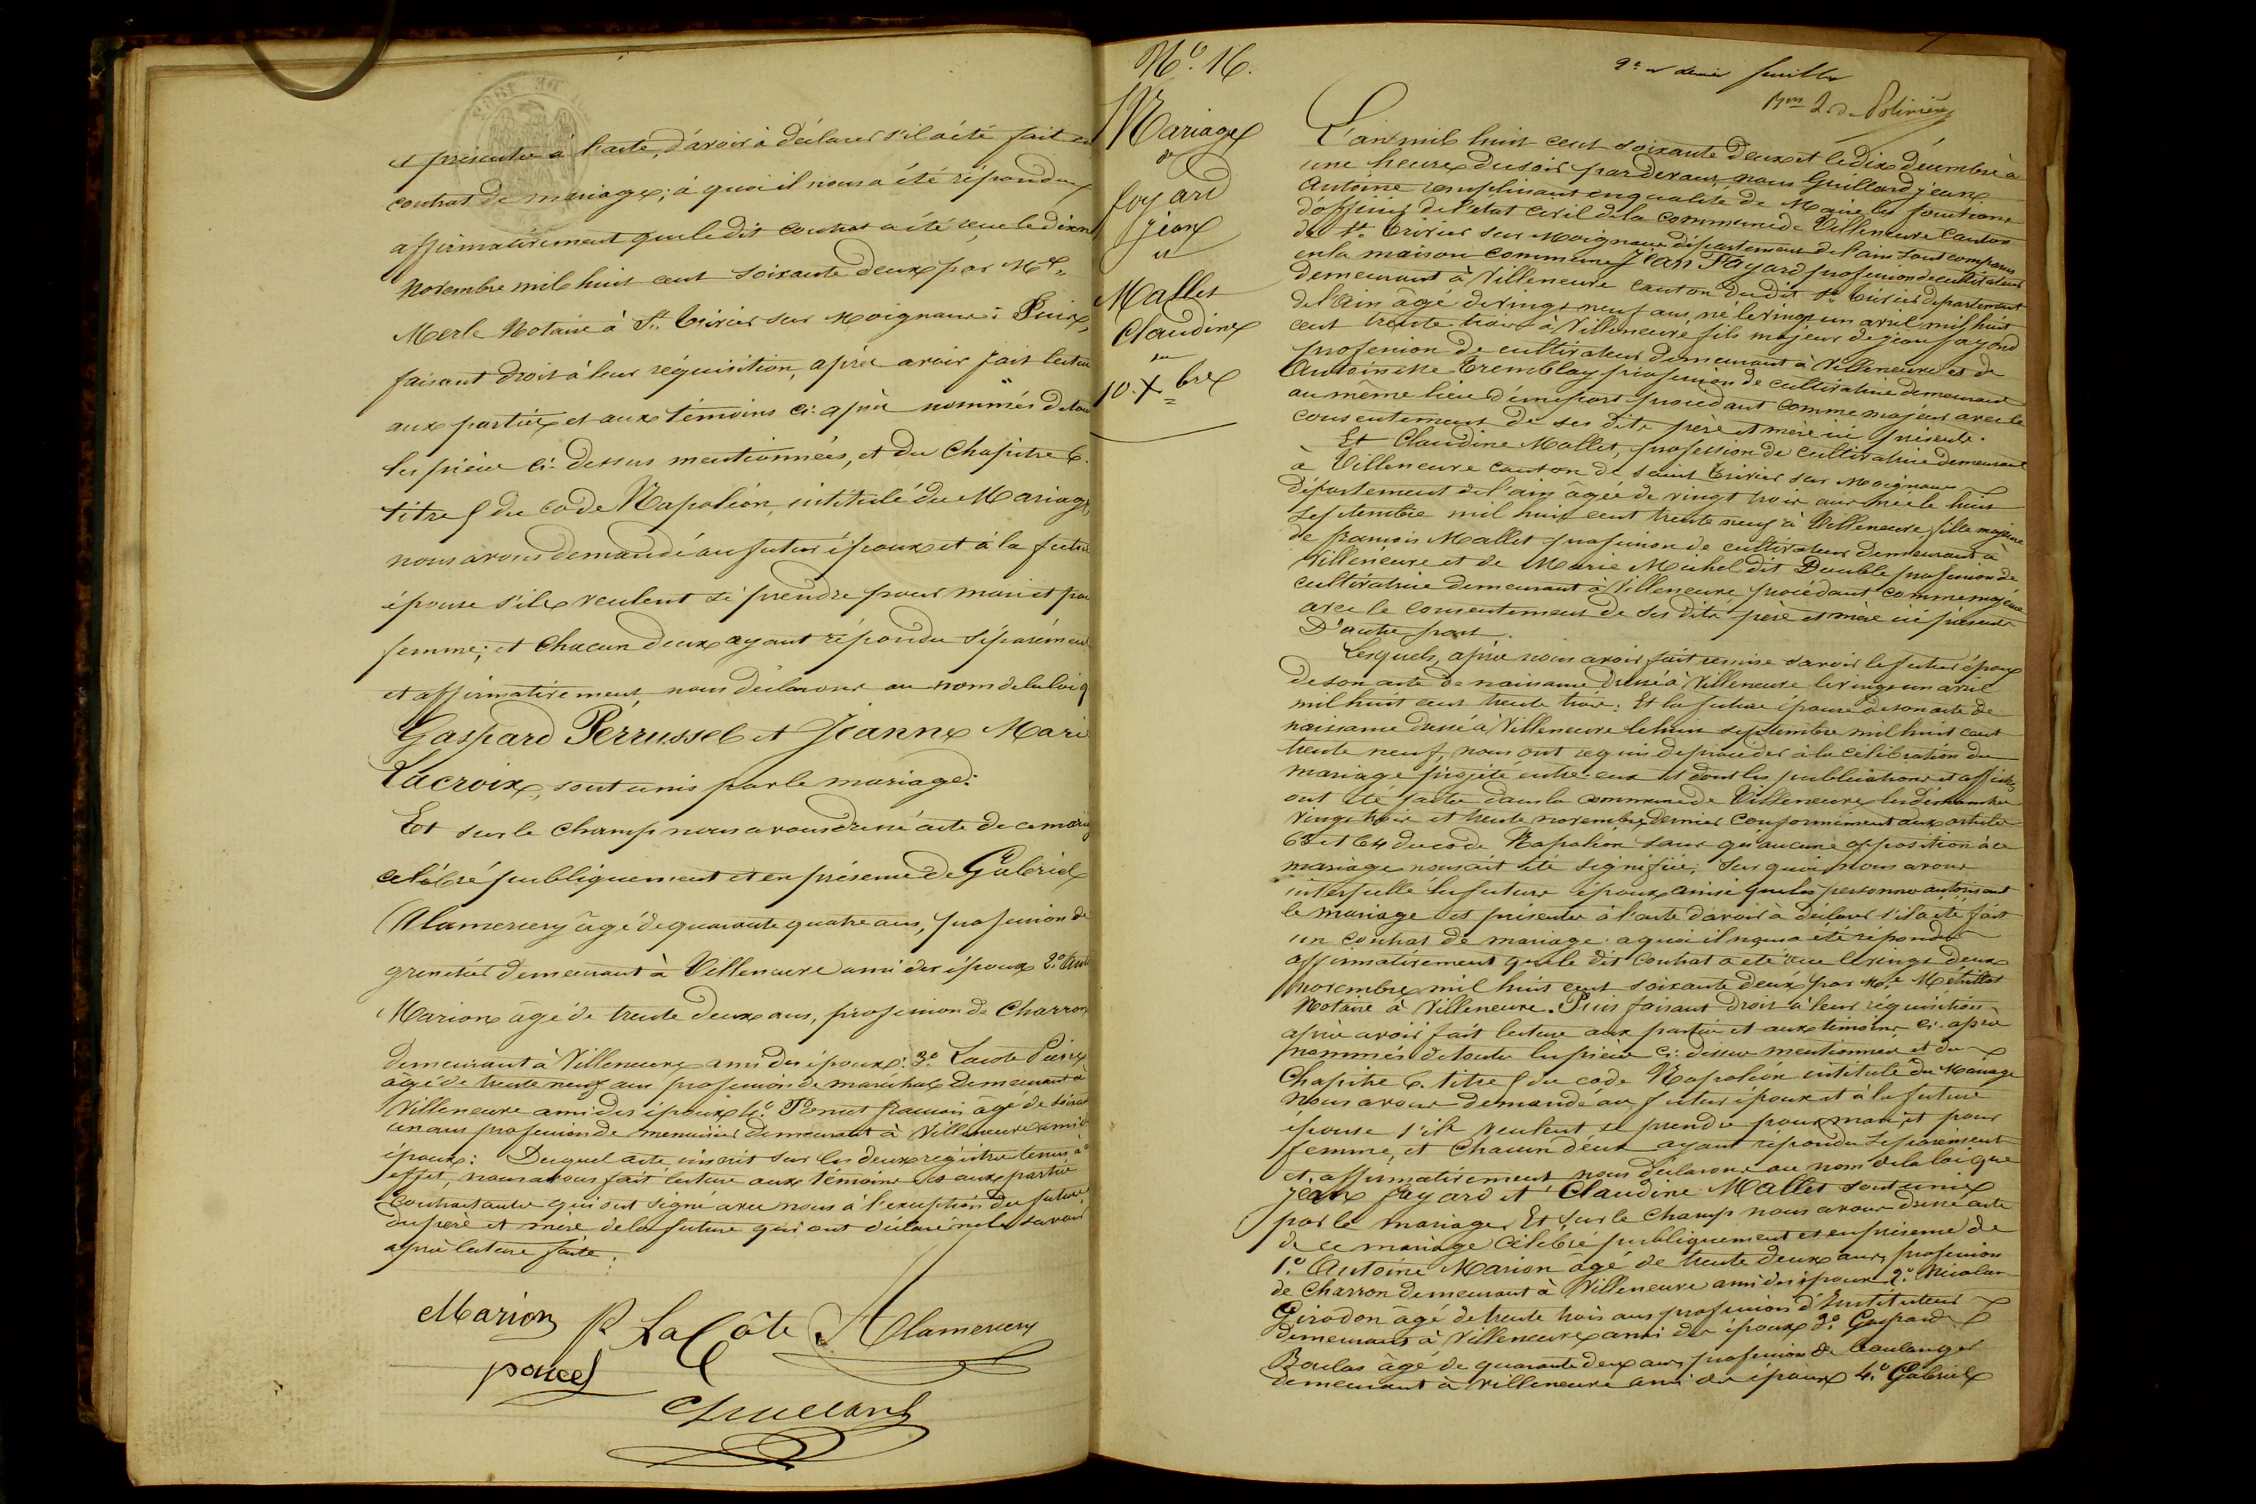 et présentes à l'acte, d'avoir à déclarer s'il a été fait un
contrat de mariage; à quoi il nous a été répondu
affirmativement que le dit contrat a été reçu le dix
Novembre mil huit cent soixante deux par Me
Merle Notaire à St. Trivier sur Moignans: Puis,
faisant droit à leur réquisition, après avoir fait lecture
aux parties et aux témoins ci-après nommés de toutes
les pièces ci-dessus mentionnées, et du Chapitre 6.
titre 5 du code Napoléon, intitulé du Mariage,
nous avons demandé au futur époux et à la future
épouse s'ils veulent se prendre pour mari et pour
femme; et chacun deux ayant répondu séparément
et affirmativement nous déclarons au nom de la loi q
Gaspard Pérrussel et Jeanne Marie
Lacroix, sont unis par le mariage:
Et sur le champ nous avons dressé acte de ce mariage
célébré publiquement et en présence de Gabriel
Alamercery âgé de quarante quatre ans, profession de
grenetier demeurant à Villeneuve ami des époux 2.º
Marion âgé de trente deux ans, profession de Charron
demeurant à Villeneuve ami des époux: 3.º Lacote Pierre
âgé de trente neuf ans profession de maréchal demeurant à
Villeneuve ami des époux 4.º Poncet françois âgé de soixante
un ans profession de menuisier demeurant à Villeneuve ami des
époux: Duquel acte, inscrit sur les deux registres tenus à
effet, nous avons fait lecture aux témoins et aux parties
contractantes qui ont signé avec nous à l'exception du futur,
du père et mère de la future qui ont déclaré ne le savoir
après lecture faite:
Marion P LaCôte Alamercery
poncet
Guillard
Nº. 16.
Mariage
de
foyard
Jean
et
Mallet
Claudine
du
10. Xbre
2e et dernier feuille
L'an mil huit cent soixante deux et le dix décembre à
une heure du soir par devant nous Guillard jean
Antoine remplissant en qualité de Maire les fonctions
d'officier de l'état civil de la commune de Villeneuve canton
de St. Trivier sur Moignans département de l'ain sont comparus
en la maison commune Jean Fayard profession de cultivateur
demeurant à Villeneuve canton du dit St. Trivier département
de l'ain âgé de vingt neuf ans, né le vingt un avril mil huit
cent trente trois à Villeneuve fils majeur de jean fayard
profession de cultivateur demeurant à Villeneuve et de
Antoinette Tremblay profession de cultivatrice demeurant
au même lieu d'une part procédant comme majeur avec le
consentement de ses dits père et mère ici présents.
Et Claudine Mallet, profession de cultivatrice demeurant
à Villeneuve canton de saint Trivier sur Moignans
département de l'ain âgée de vingt trois ans née le huit
septembre mil huit cent trente neuf à Villeneuve fille majeure
de françois Mallet profession de cultivateur demeurant à
Villeneuve et de Marie Michel dit Double profession de
cultivatrice demeurant à Villeneuve procédant comme majeure
avec le consentement de ses dits père et mère ici présents
D'autre part.
Lesquels, après nous avoir fait remise savoir le futur époux
de son acte de naissance dressé à Villeneuve le vingt un avril
mil huit cent trente trois: Et la future épouse de son acte de
naissance dressé à Villeneuve le huit septembre mil huit cent
trente neuf, nous ont requis de procéder à la célébration du
mariage projeté entre eux et dont les publications et affiches
ont été faites dans la commune de Villeneuve les dimanches
vingt trois et trente novembre dernier conformément aux articles
63 et 64 du code Napoléon sans qu'aucune opposition à ce
mariage nous ait été signifiée; Sur quoi nous avons
interpellé les futurs époux ainsi que les personnes autorisant
le mariage et présentes à l'acte d'avoir à déclarer s'il a été fait
un contrat de mariage. à quoi il nous a été répondu
affirmativement que le dit contrat a été reçu le vingt deux
novembre mil huit cent soixante deux par Me. Métillot
Notaire à Villeneuve. Puis faisant droit à leur réquisition
après avoir fait lecture aux parties et aux témoins ci-après
nommés de toutes les pièces ci-dessus mentionnées et du
Chapitre 6. titre 5 du code Napoléon intitulé du Mariage
Nous avons demandé au futur époux et à la future
épouse s'ils veulent se prendre pour mari et pour
femme, et chacun d'eux ayant répondu séparément
et affirmativement nous déclarons au nom de la loi que
jean fayard et Claudine Mallet sont unis
par le mariage. Et sur le champ nous avons dressé acte
de ce mariage célébré publiquement et en présence de
1.º Antoine Marion âgé de trente deux ans, profession
de Charron demeurant à Villeneuve ami des époux 2.º Nicolas
Girodon âgé de trente trois ans profession d'Instituteur
demeurant à Villeneuve ami des époux 3.º Gaspard
Boulas âgé de quarante deux ans, profession de boulanger
demeurant à villeneuve ami des époux 4.º Gabriel